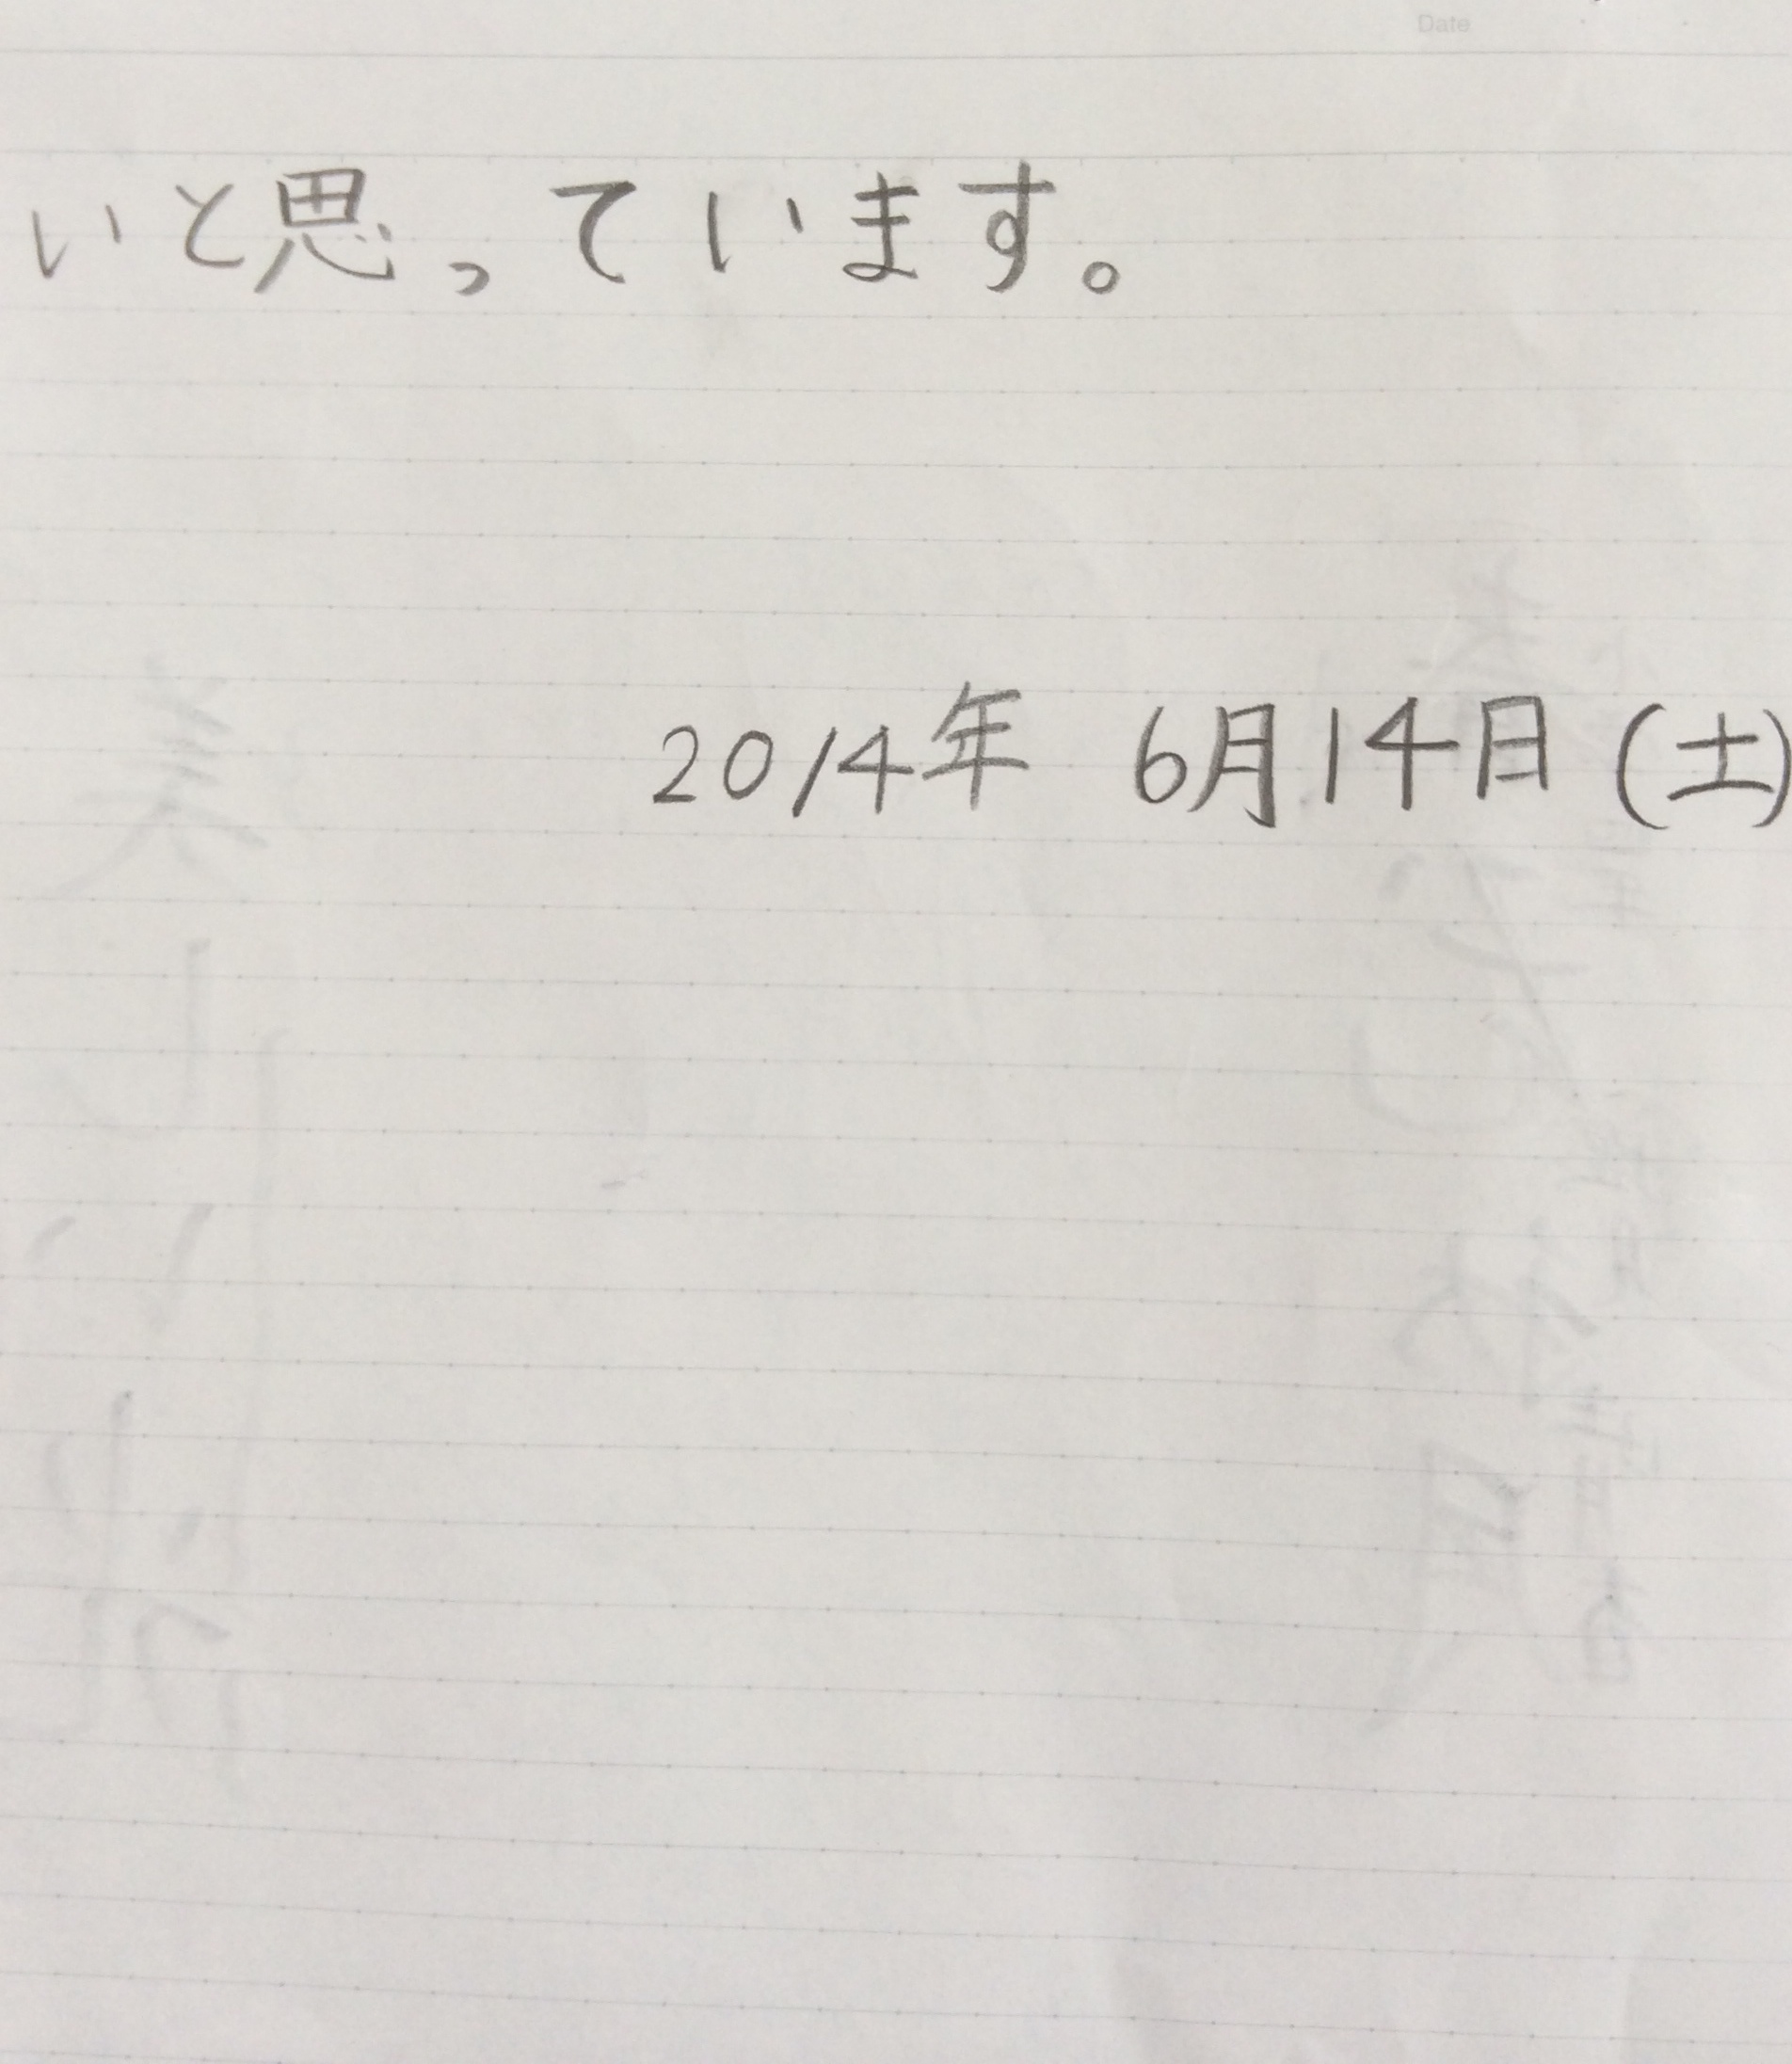 Date
いと思っています。
2014年 6月14日(土)